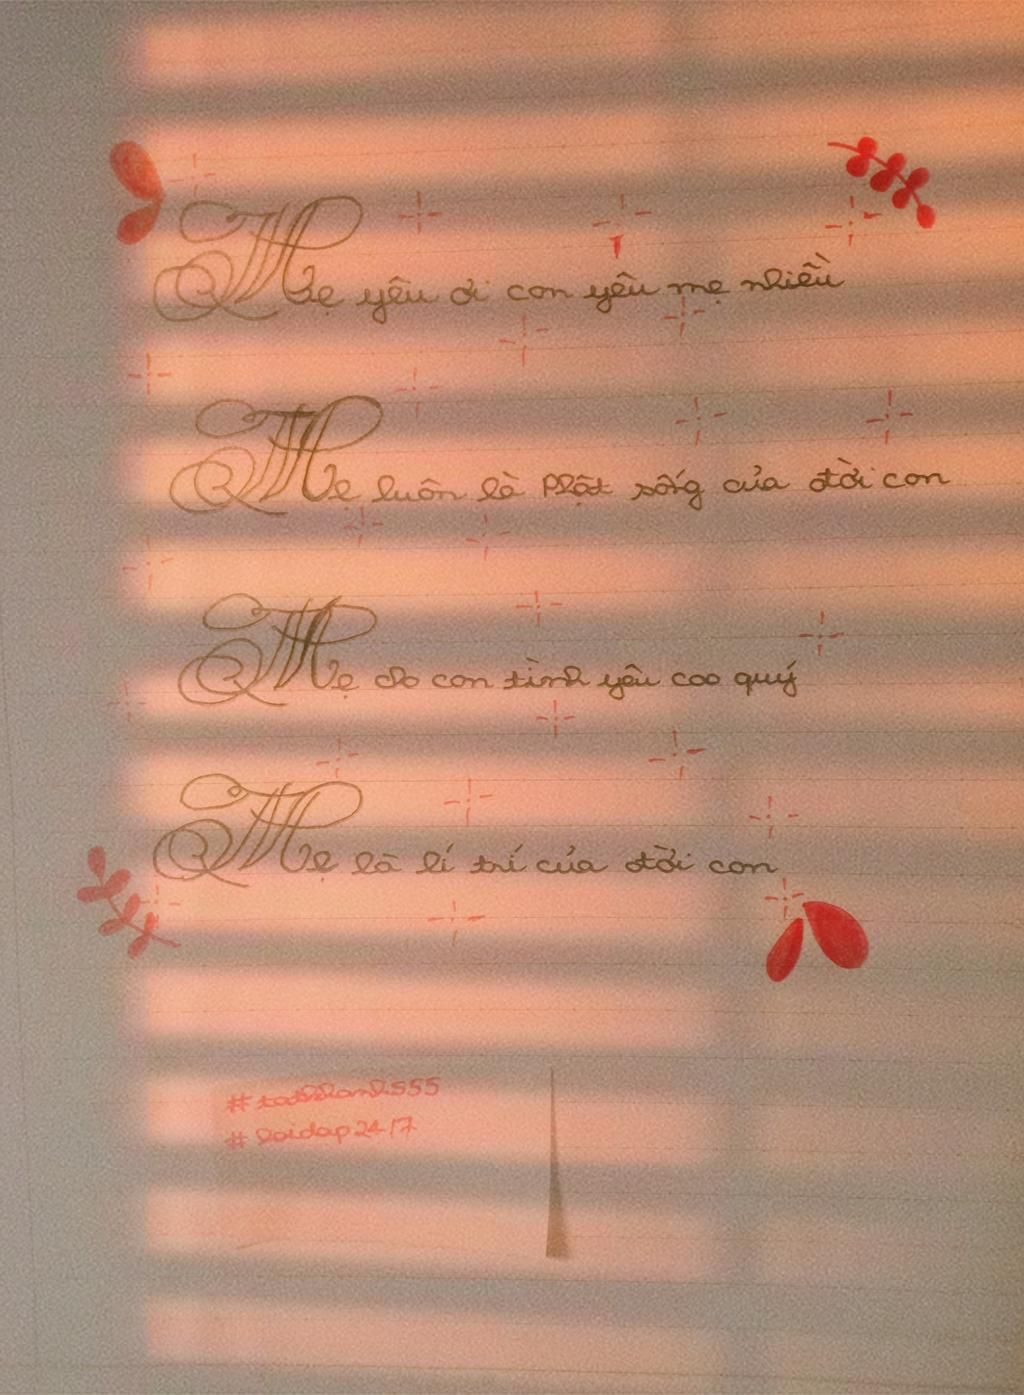 Mẹ yêu ơi con yêu mẹ nhiều
Mẹ luôn là Phật sống của đời con
Mẹ cho con tình yêu cao quý
Mẹ là lí trí của đời con
#loidap24/7